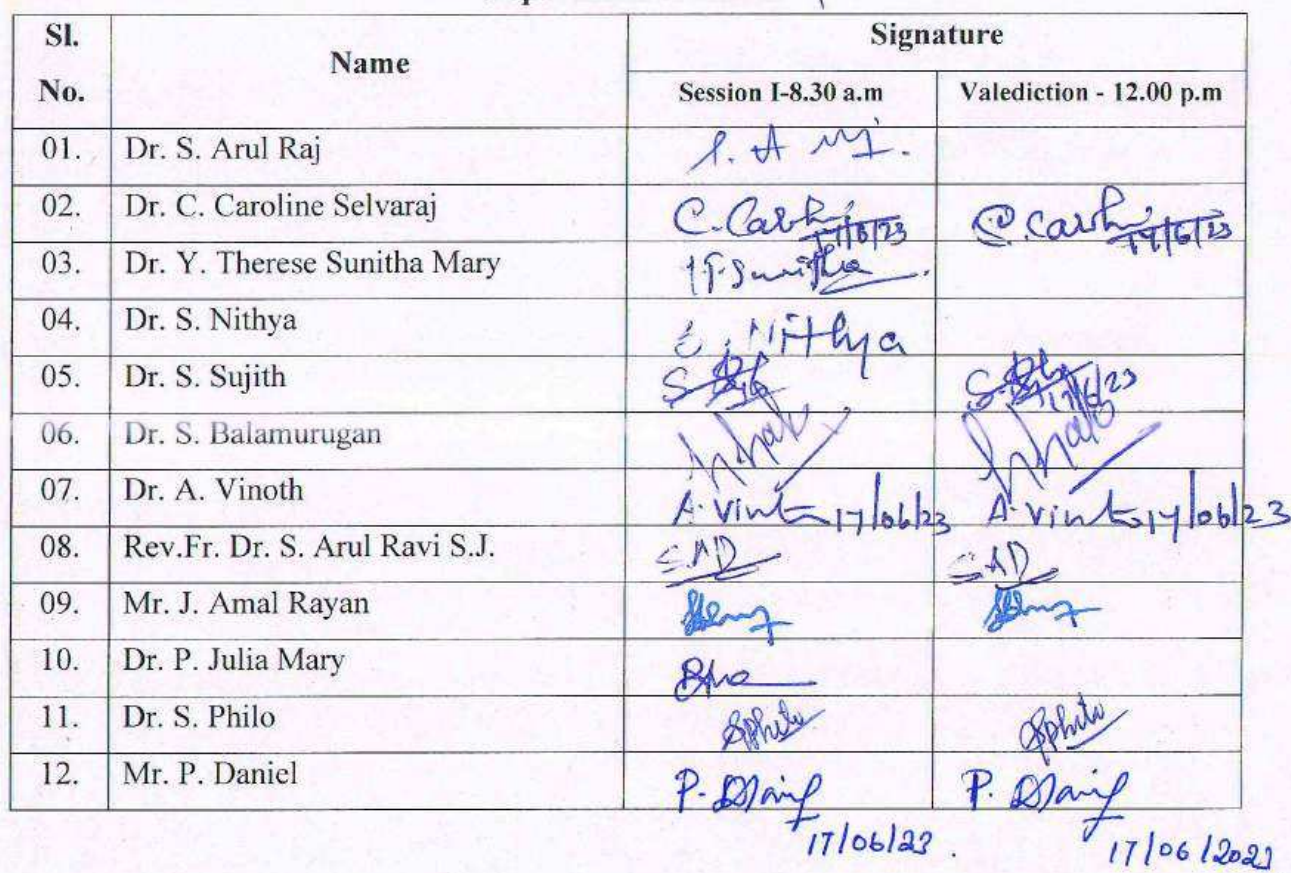 Sl. No. Name Signature
Session I-8.30 a.m Valediction - 12.00 p.m
01. Dr. S. Arul Raj
02. Dr. C. Caroline Selvaraj 17/6/23 17/6/23
03. Dr. Y. Therese Sunitha Mary Sunitha
04. Dr. S. Nithya Nithya
05. Dr. S. Sujith 17/6/23
06. Dr. S. Balamurugan
07. Dr. A. Vinoth A. Vinoth 17/06/23 A. Vinoth 17/06/23
08. Rev.Fr. Dr. S. Arul Ravi S.J.
09. Mr. J. Amal Rayan
10. Dr. P. Julia Mary
11. Dr. S. Philo SPhilo SPhilo
12. Mr. P. Daniel P. Daniel P. Daniel
17/06/23. 17/06/2023